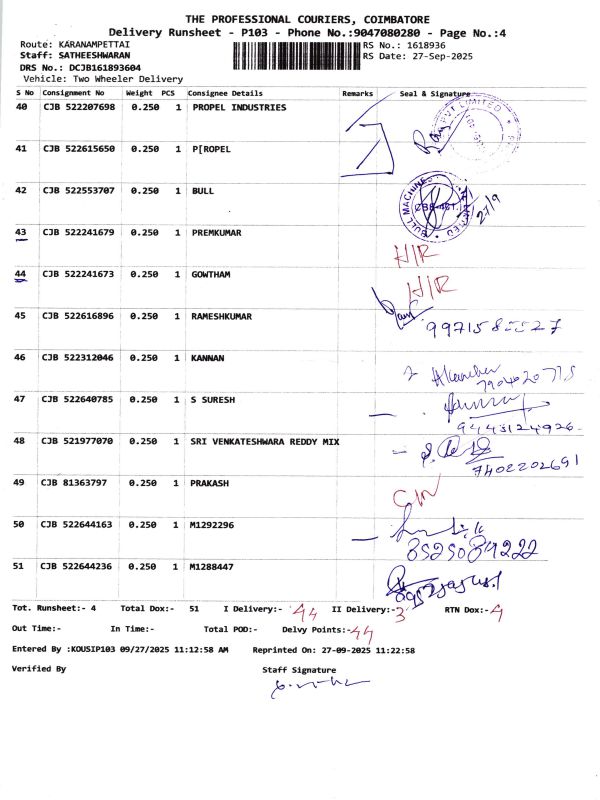 THE PROFESSIONAL COURIERS, COIMBATORE
Delivery Runsheet - P103 - Phone No.:9047080280 - Page No.:4
Route: KARANAMPETTAI RS No.: 1618936
Staff: SATHEESHWARAN RS Date: 27-Sep-2025
DRS No.: DCJB161893604
Vehicle: Two Wheeler Delivery
S No Consignment No Weight PCS Consignee Details Remarks Seal & Signature
40 CJB 522207698 0.250 1 PROPEL INDUSTRIES
41 CJB 522615650 0.250 1 P[ROPEL
42 CJB 522553707 0.250 1 BULL 27/9
43 CJB 522241679 0.250 1 PREMKUMAR H/R
44 CJB 522241673 0.250 1 GOWTHAM H/R
45 CJB 522616896 0.250 1 RAMESHKUMAR
46 CJB 522312046 0.250 1 KANNAN
47 CJB 522640785 0.250 1 S SURESH
9443124926
48 CJB 521977070 0.250 1 SRI VENKATESHWARA REDDY MIX
7402202691
49 CJB 81363797 0.250 1 PRAKASH
50 CJB 522644163 0.250 1 M1292296
8525089222
51 CJB 522644236 0.250 1 M1288447
Tot. Runsheet:- 4 Total Dox:- 51 I Delivery:- 44 II Delivery:- 3 RTN Dox:- 4
Out Time:- In Time:- Total POD:- Delvy Points:- 44
Entered By :KOUSIP103 09/27/2025 11:12:58 AM Reprinted On: 27-09-2025 11:22:58
Verified By Staff Signature